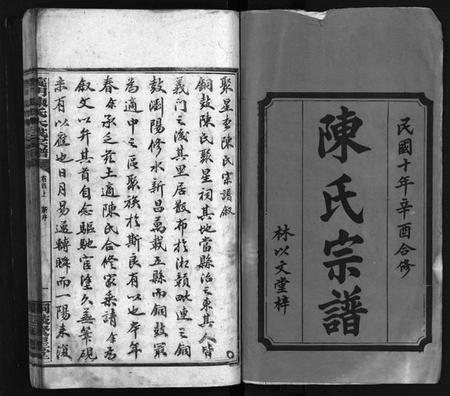 民國十年辛酉合修
陳氏宗譜
林以文堂梓
聚星堂陳氏宗譜敘
銅鼓陳氏聚星祠其地當縣治之東其人皆
義門之後其里居散布於湘贛毗連之銅
鼓瀏陽修水新昌萬載五縣而銅鼓
為適中之區聚族於斯良有以也本年
春余承乏茲土適陳氏合修家乘請余為
敘文以弁其首自念驅馳宦塗久無筆硯
未有以應也日月易邁轉瞬而一陽來復
卷首上
新序